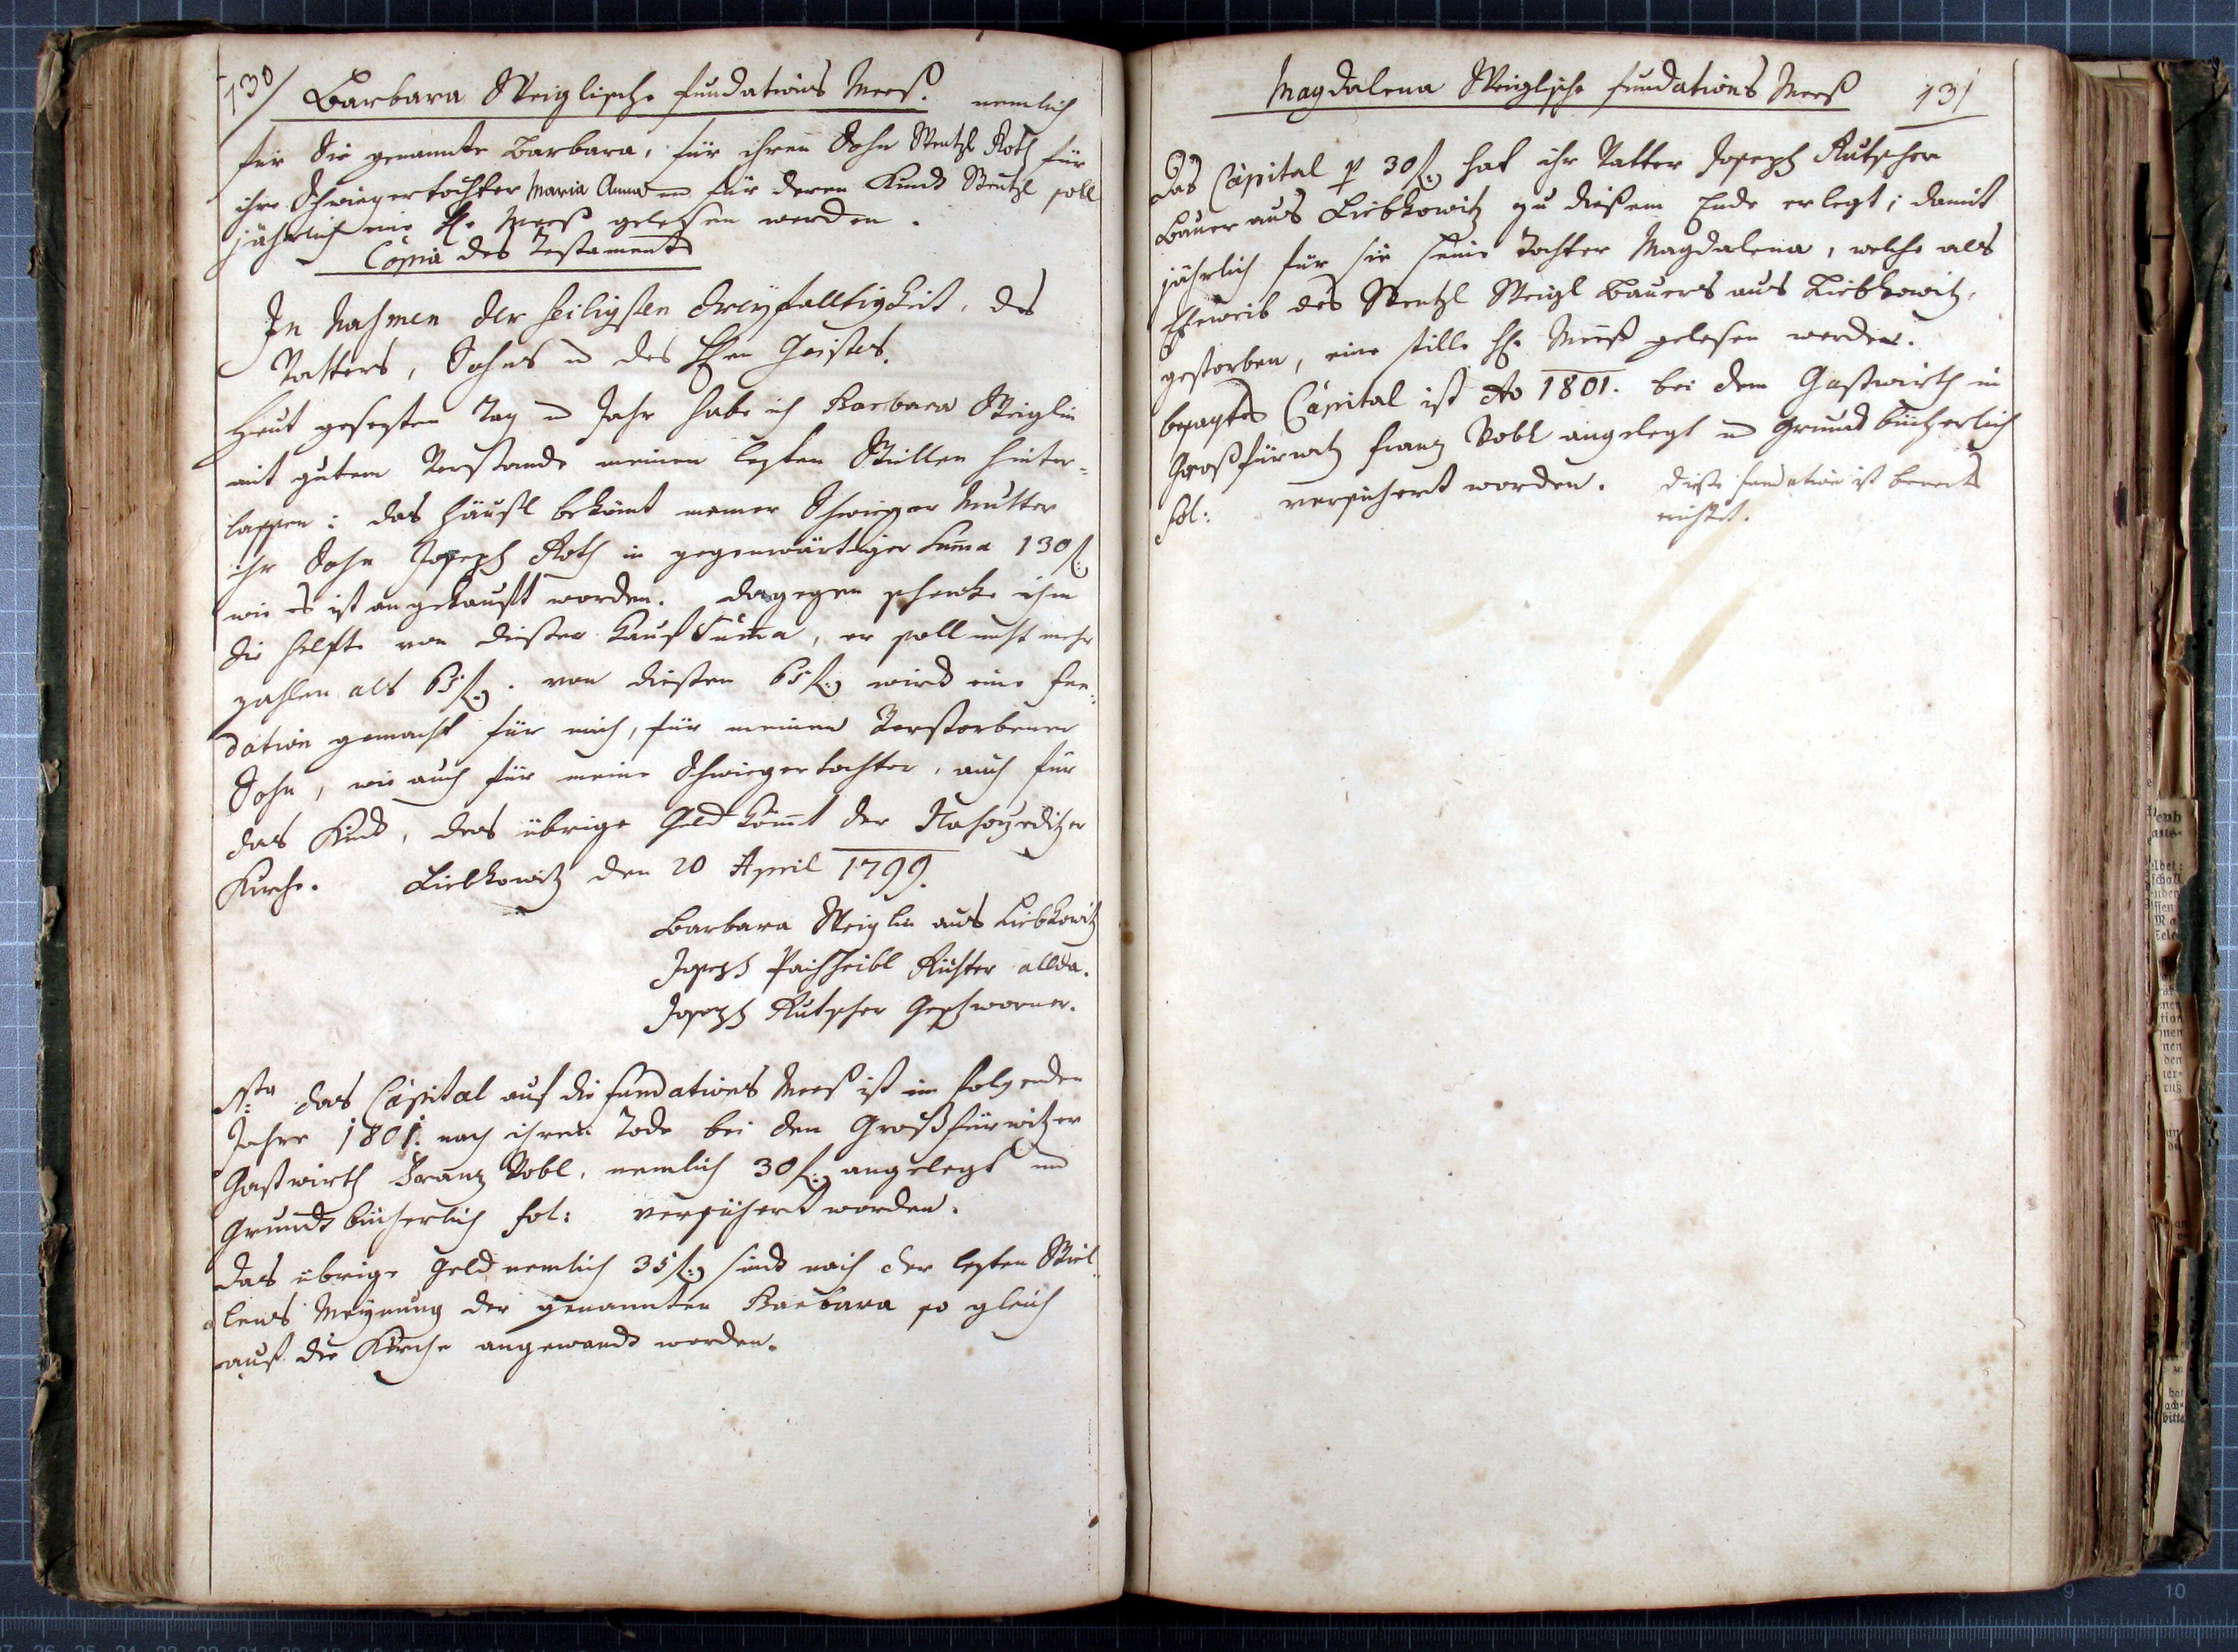 130/ Barbara Weiglische fundations Mess. nemlich
für die genannte Barbara, für ihren Sohn Wentzl Roth für
ihre Schwiegertochter Maria Anna für deren Kind Wentzl soll
jährlich eine Hl. Mess gelesen werden.
Copia des Testaments
In Nahmen der heiligsten Dreyfalltigkeit, des
Vatters, Sohns u des Hlen Geistes.
Heut gesezten Tag u Jahr habe ich Barbara Weiglin
mit gutem Verstande meinen lezten Willen hinter-
lassen: das Häusl bekömt meiner Schwieger Mutter
ihr Sohn Joseph Roth in gegenwärtiger Suma 130 f
wie es ist angekauft worden. Dagegen schenke ihm
die helfte von dieser Kauf Suma, er soll nicht mehr
zahlen als 65 f. von diesen 65 f wird eine fun-
dation gemacht für mich, für meinen Verstorbenen
Sohn, wie auch für meine Schwiegertochter, auch für
das Kind, das übrige Geld kömt der Nahorzeditzer
Kirche. Liebkowitz den 20 April 1799.
Barbara Weiglin aus Liebkowitz
Joseph Richter allda.
Joseph Kutscher Geschworner.
Nta das Capital auf die fundations Mess ist im folgenden
Jahre 1801. nach ihren Tode bei den Großfürwitzer
Gastwirth Franz Vobl, nemlich 30 f angelegt und
Grundbücherlich fol: versichert worden.
das übrige Geld nemlich 35 f sind nach der lezten Wil-
lens Meynung der genannten Barbara so gleich
auf die Kirche angewandt worden.
Magdalena Weiglische fundations Mess 131
Das Capital p 30 f hat ihr Vatter Joseph Kutscher
Bauer aus Liebkowitz zu diesem Ende erlegt; damit
jährlich für sie seine Tochter Magdalena, welche als
Eheweib des Wentzl Weigl Bauers aus Liebkowitz,
gestorben, eine stille Hl. Mess gelesen werde.
besagtes Capital ist Ao 1801. bei dem Gastwirth in
Großfürwitz Franz Vobl angelegt u Grundbücherlich
fol: versichert worden. diese fundation ist bereits
errichtet.